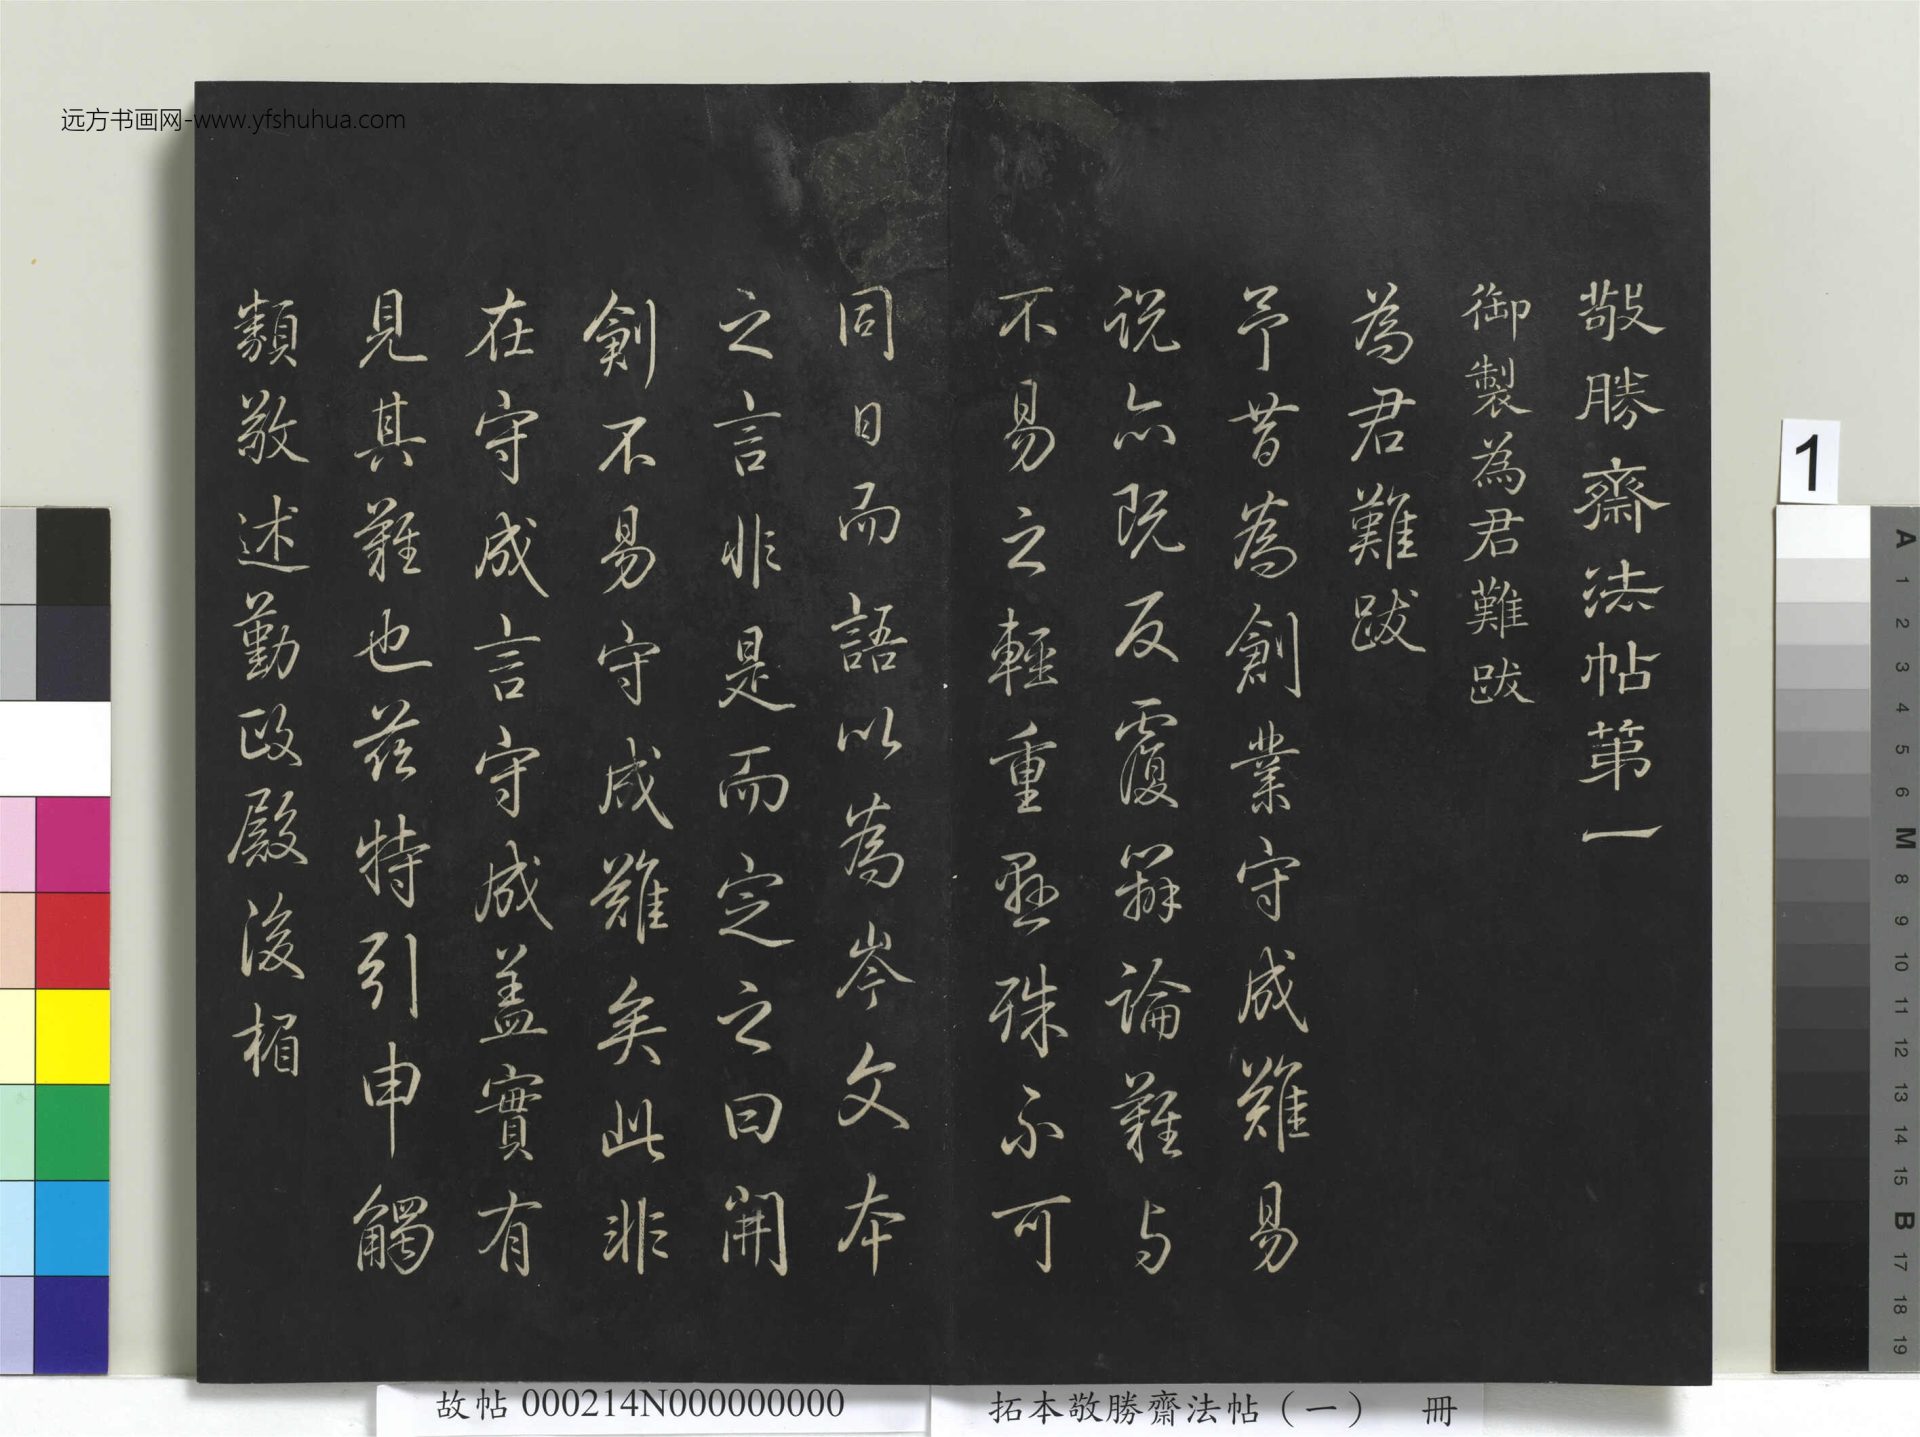 远方书画网-www.yfshuhua.com
敬勝齋法帖第一
御製為君難跋
為君難跋
予昔為創業守成難易
说亦既反覆辨論難与
不易之輕重懸殊不可
同日而語以為岑文本
之言非是而定之曰開
創不易守成難矣此非
在守成言守成蓋實有
見其難也茲特引申觸
類敬述勤政殿後楣
1
A
1
2
3
4
5
6
M
8
9
10
11
12
13
14
15
B
17
18
19
故帖 000214N000000000
拓本敬勝齋法帖（一） 冊